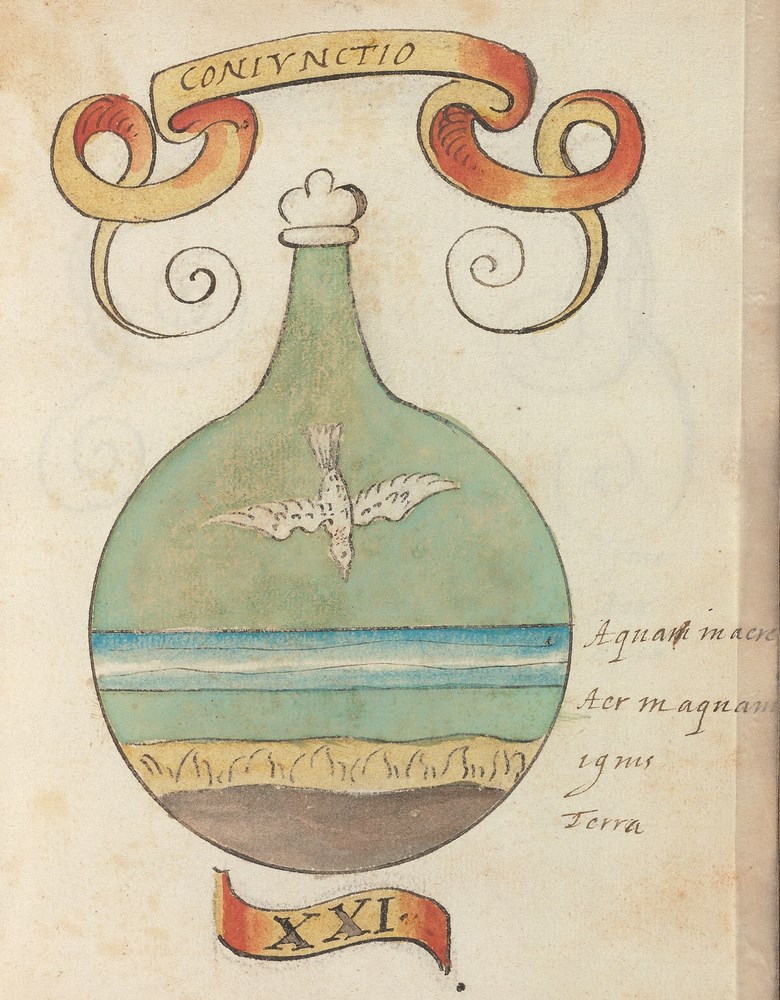 CONIVNCTIO
Aquam in aere
Aer in aquam
ignis
Terra
XXI.